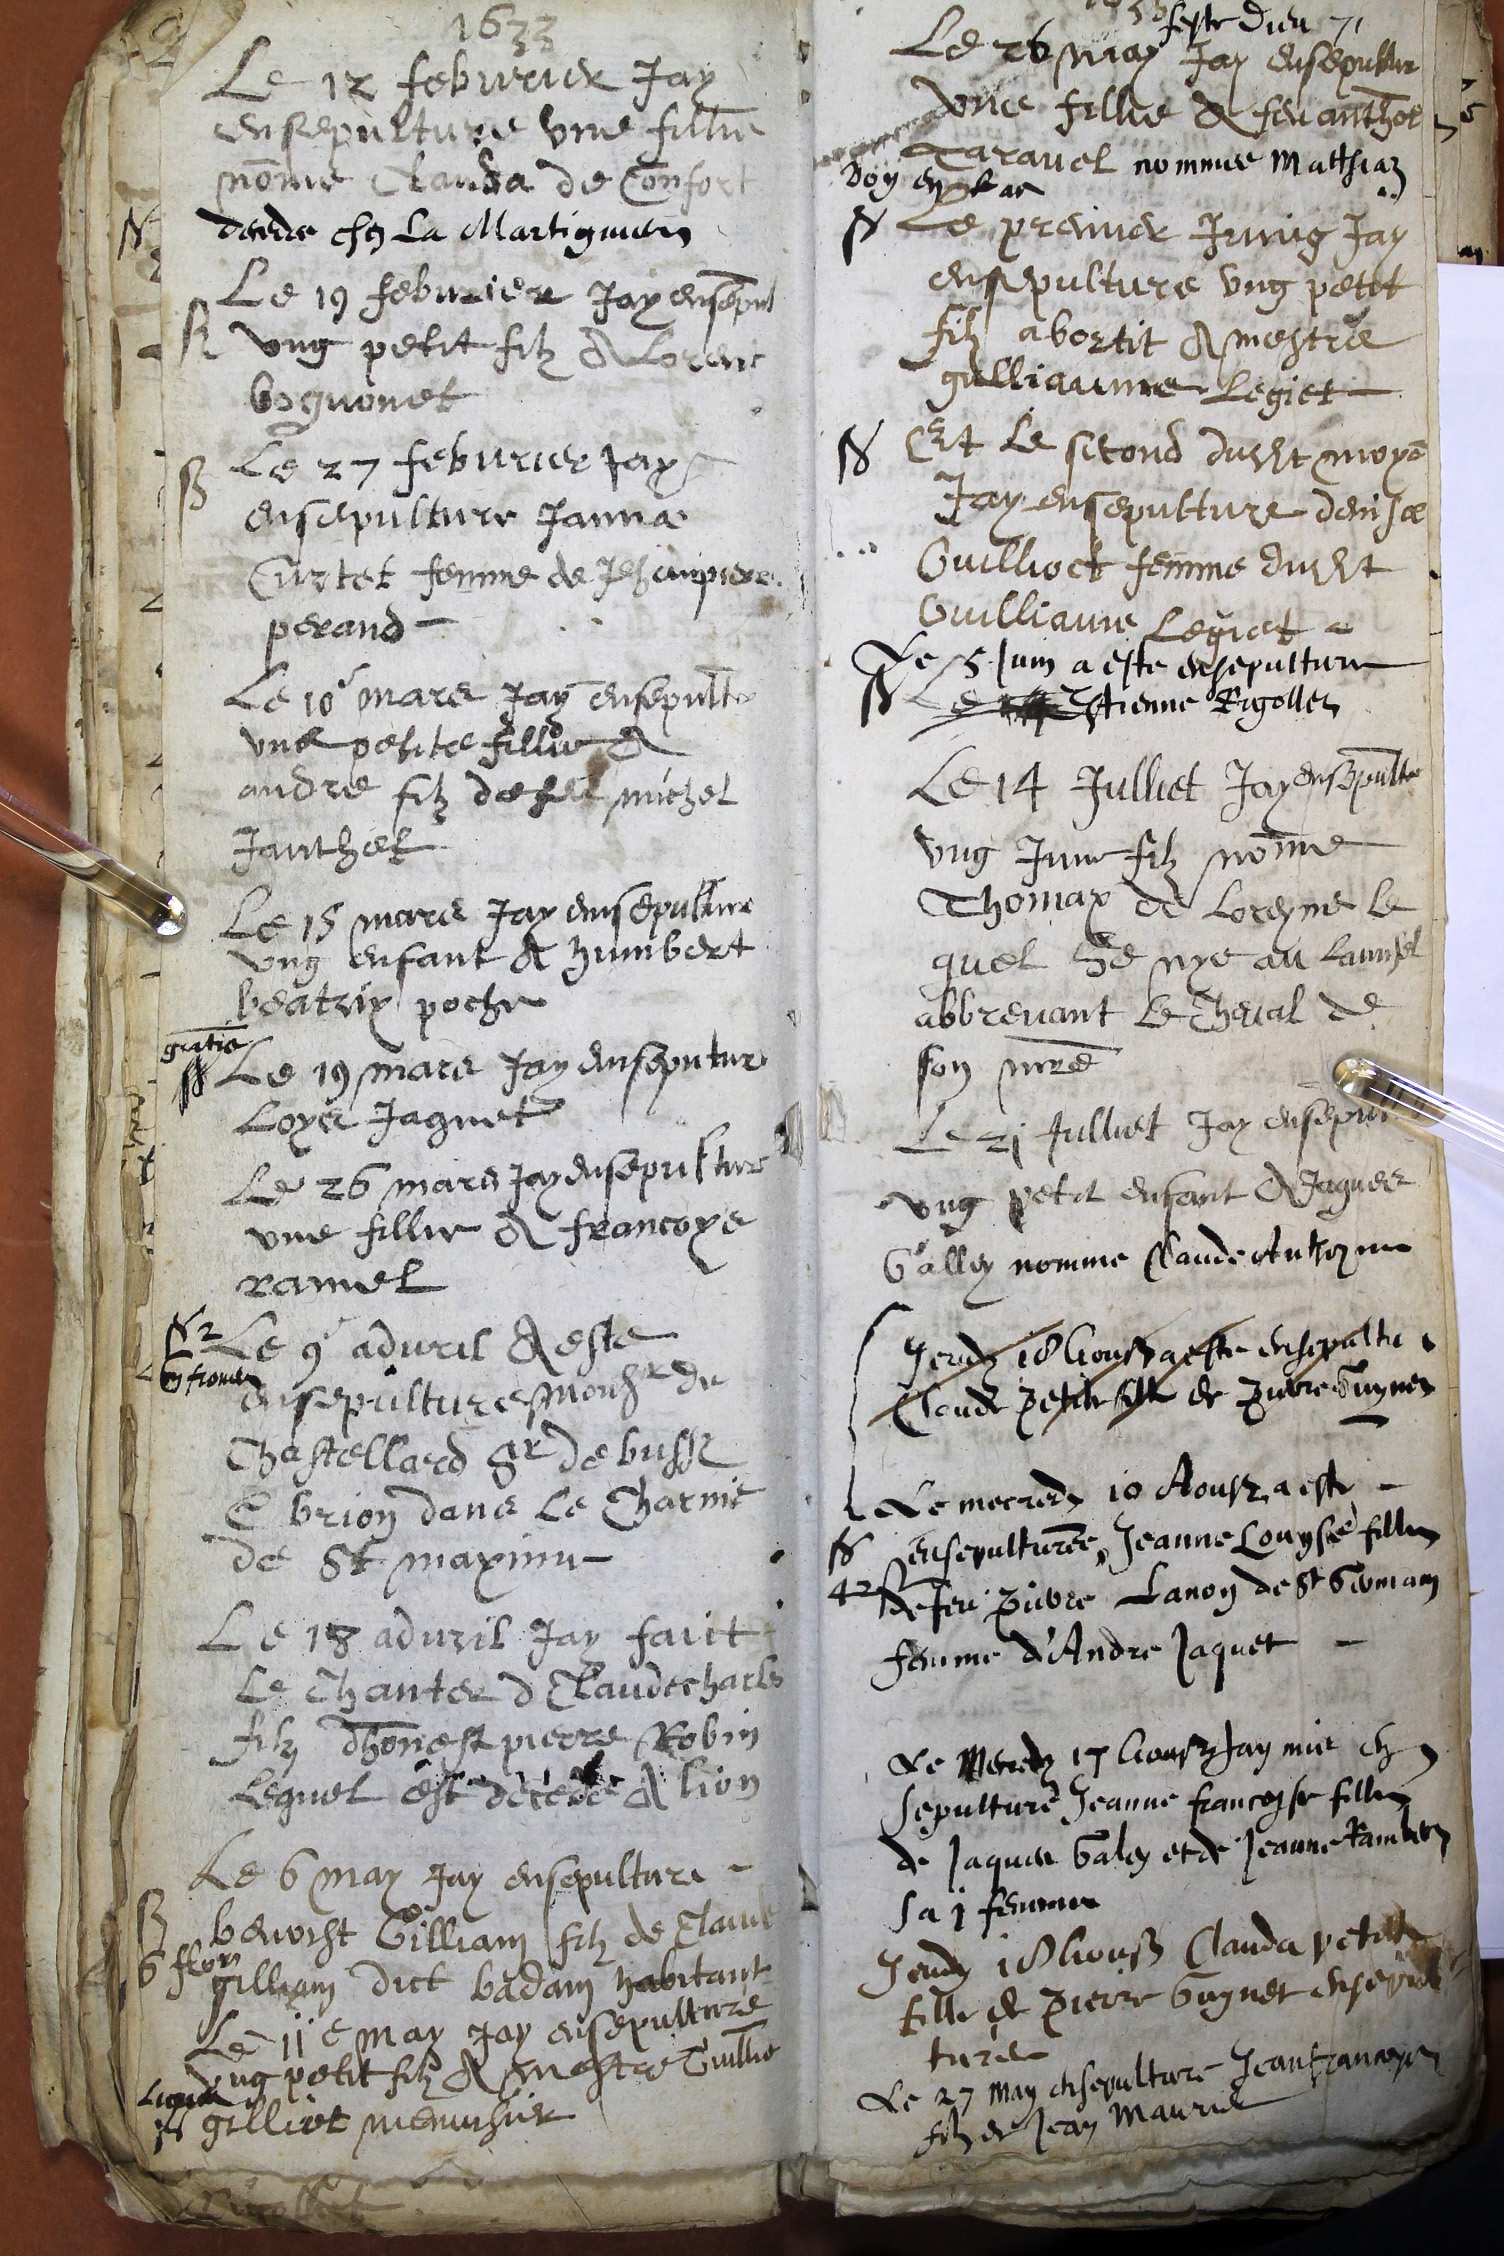 1633
Le 12 feburier Jay
ensepulture une fillie
nōmé Clauda de Confort
decede chez La Martignieres
Le 19 feburier Jay ensepul
ung petit filz A Lorent
bognonet
Le 27 feburier Jay
ensepulture Janna
Curtet femme de Jehanpierre
perand
Le 10 mars Jay ensepult
une petite fillie A
andre filz de feu michel
Janthet
Le 15 mars Jay ensepulture
ung enfant A humbert
beatrix poche
gratis
Le 19 mars Jay enseputur
Loyse Jaquet
Le 26 mars Jay ensepulture
une fillie A francoys
ramel
Le 9 aduril A este
ensepulture Monsr de
Chastellard Sr de bussi
& brion dans le Charnie
de St maximi
Le 18 aduril Jay faict
Le Chanter d Claudecharles
filz dhonest pierre Robin
Lequel est décédé A lion
Le 6 may Jay ensepulture
benoist Gilliam filz de Claude
6 flor
gilliam dict badam habitant
Le 11e may Jay ensepulture
ung petit filz A mestre Guillie
gilliet menusier
feste Dieu
Le 26 may Jay ensepultur
une fillie A feu anthoe
Taravel nommee Matthiaz
Le premier Juing Jay
ensepulture ung petit
filz abortit A mestre
gulliaume Legiet
Et Le second dudit moys
Jay ensepulture denise
Guillioct femme dudit
Guilliaume Legiet
Le 5 Juin a este ensepulture
Estienne Rigollet
Le 14 Julliet Jay ensepulte
ung Jeune filz nomme
Thomax de Loreyne le
quel se nye au
abbreuant le Cheval de
son mre
Le 21 Julliet Jay ensepul
ung petit enfant A Jaques
Galley nomme Claude Anthoyne
Jeudy 18 Aoust a este ensepultu
Claude petite fille de Pierre Guynet
Le mecredy 10 Aoust a este
ensepulturée Jeanne Louyse fillie
42
de feu Pierre Lanoy de St Germain
femme d'Andre Jaquet
Le Mecredy 17 Aoust Jay mis en
sepulture Jeanne francoyse fillie
de Jaques Galey et de Jeanne Rambert
sa j femme
Jeudy 18 Aoust Clauda petitte
fille de Pierre Guynet ensepul
turée
Le 27 May ensepulture Jeanfrancoys
filz de Jean Mauriel